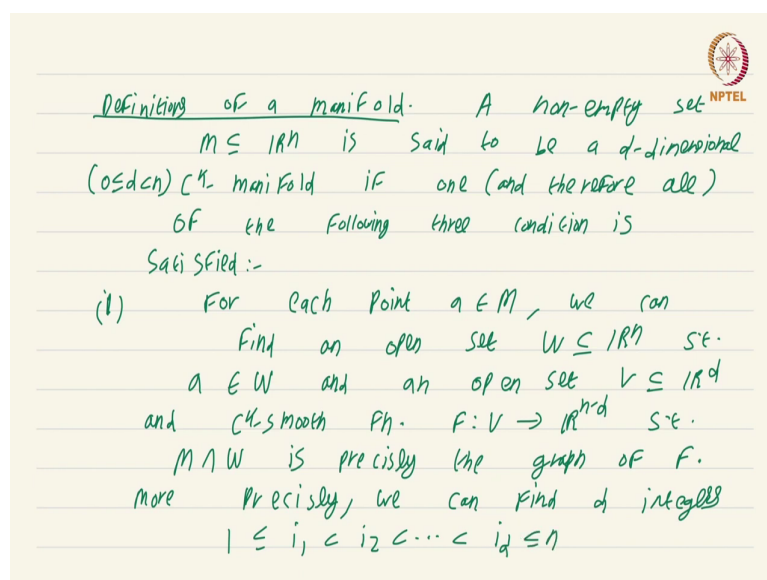 Definitions of a manifold. A non-empty set
NPTEL
M ⊆ IRn is said to be a d-dimensional
(0≤d<n) Ck- manifold if one (and therefore all)
of the following three condition is
satisfied:-
(i) For each point a ∈ M, we can
find an open set W ⊆ IRn s.t.
a ∈ W and an open set V ⊆ IRd
and Ck-smooth Fn. F: V → IRn-d s.t.
M ∩ W is precisly the graph of F.
more precisly, we can find d integers
1 ≤ i1 < i2 < ... < id ≤ n